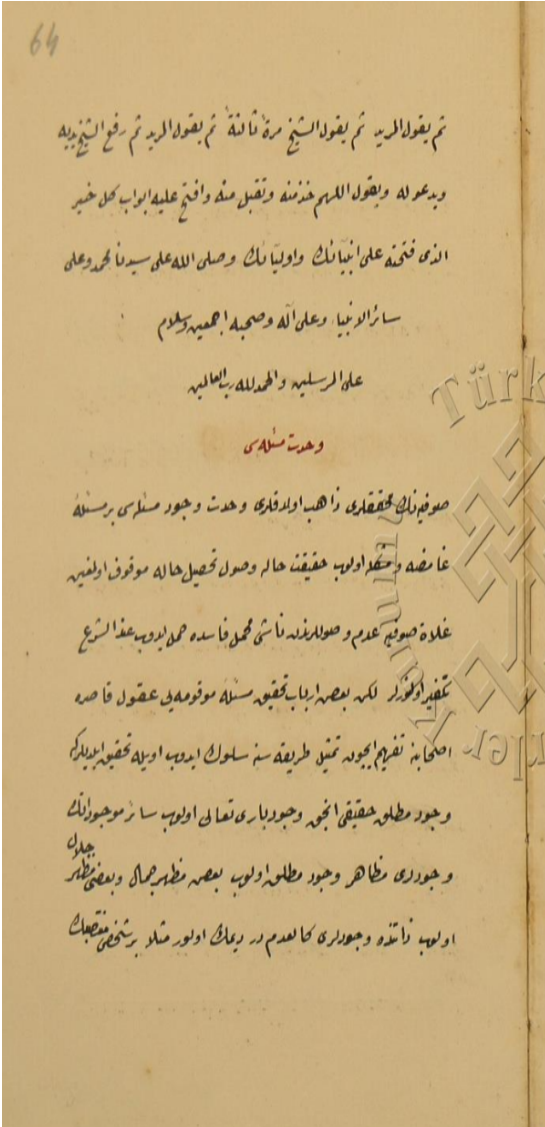 64
ثم يقول المريد ثم يقول الشيخ مرة ثالثة ثم يقول المريد ثم رفع الشيخ يديه
ويدعو له ويقول اللهم خذ منه وتقبل منه وافتح عليه ابواب كل خير
الذى فتحته على انبيآئك واوليآئك وصلى الله على سيدنا محمد وعلى
سائر الانبياء وعلى آله وصحبه اجمعين وسلام
على المرسلين والحمد لله رب العالمين
وحدت مسئله سى
صوفيه نك محققلرى ذاهب اولدقلرى وحدت وجود مسئله سى بر مسئلۀ
غامضه اولوب حقيقت حاله وصول تحصيل حاله موقوف اولمغين
غلاة صوفيه عدم وصوللرندن ناشى محمل فاسده حمل ايدوب عند الشرع
تكفير اولنورلر لكن بعض ارباب تحقيق مسئلۀ مرقومه يى عقول قاصره
اصحابنه تفهيم ايچون تمثيل طريقه سنه سلوك ايدوب اويله تحقيق ايلديلر كه
وجود مطلق حقيقى انجق وجود بارى تعالى اولوب سائر موجوداتك
وجودلرى مظاهر وجود مطلق اولوب بعض مظهر جمال وبعضى مظهر جلال
اولوب ذاتنده وجودلرى كالعدم در ديمك اولور مثلا بر شخص
Türk